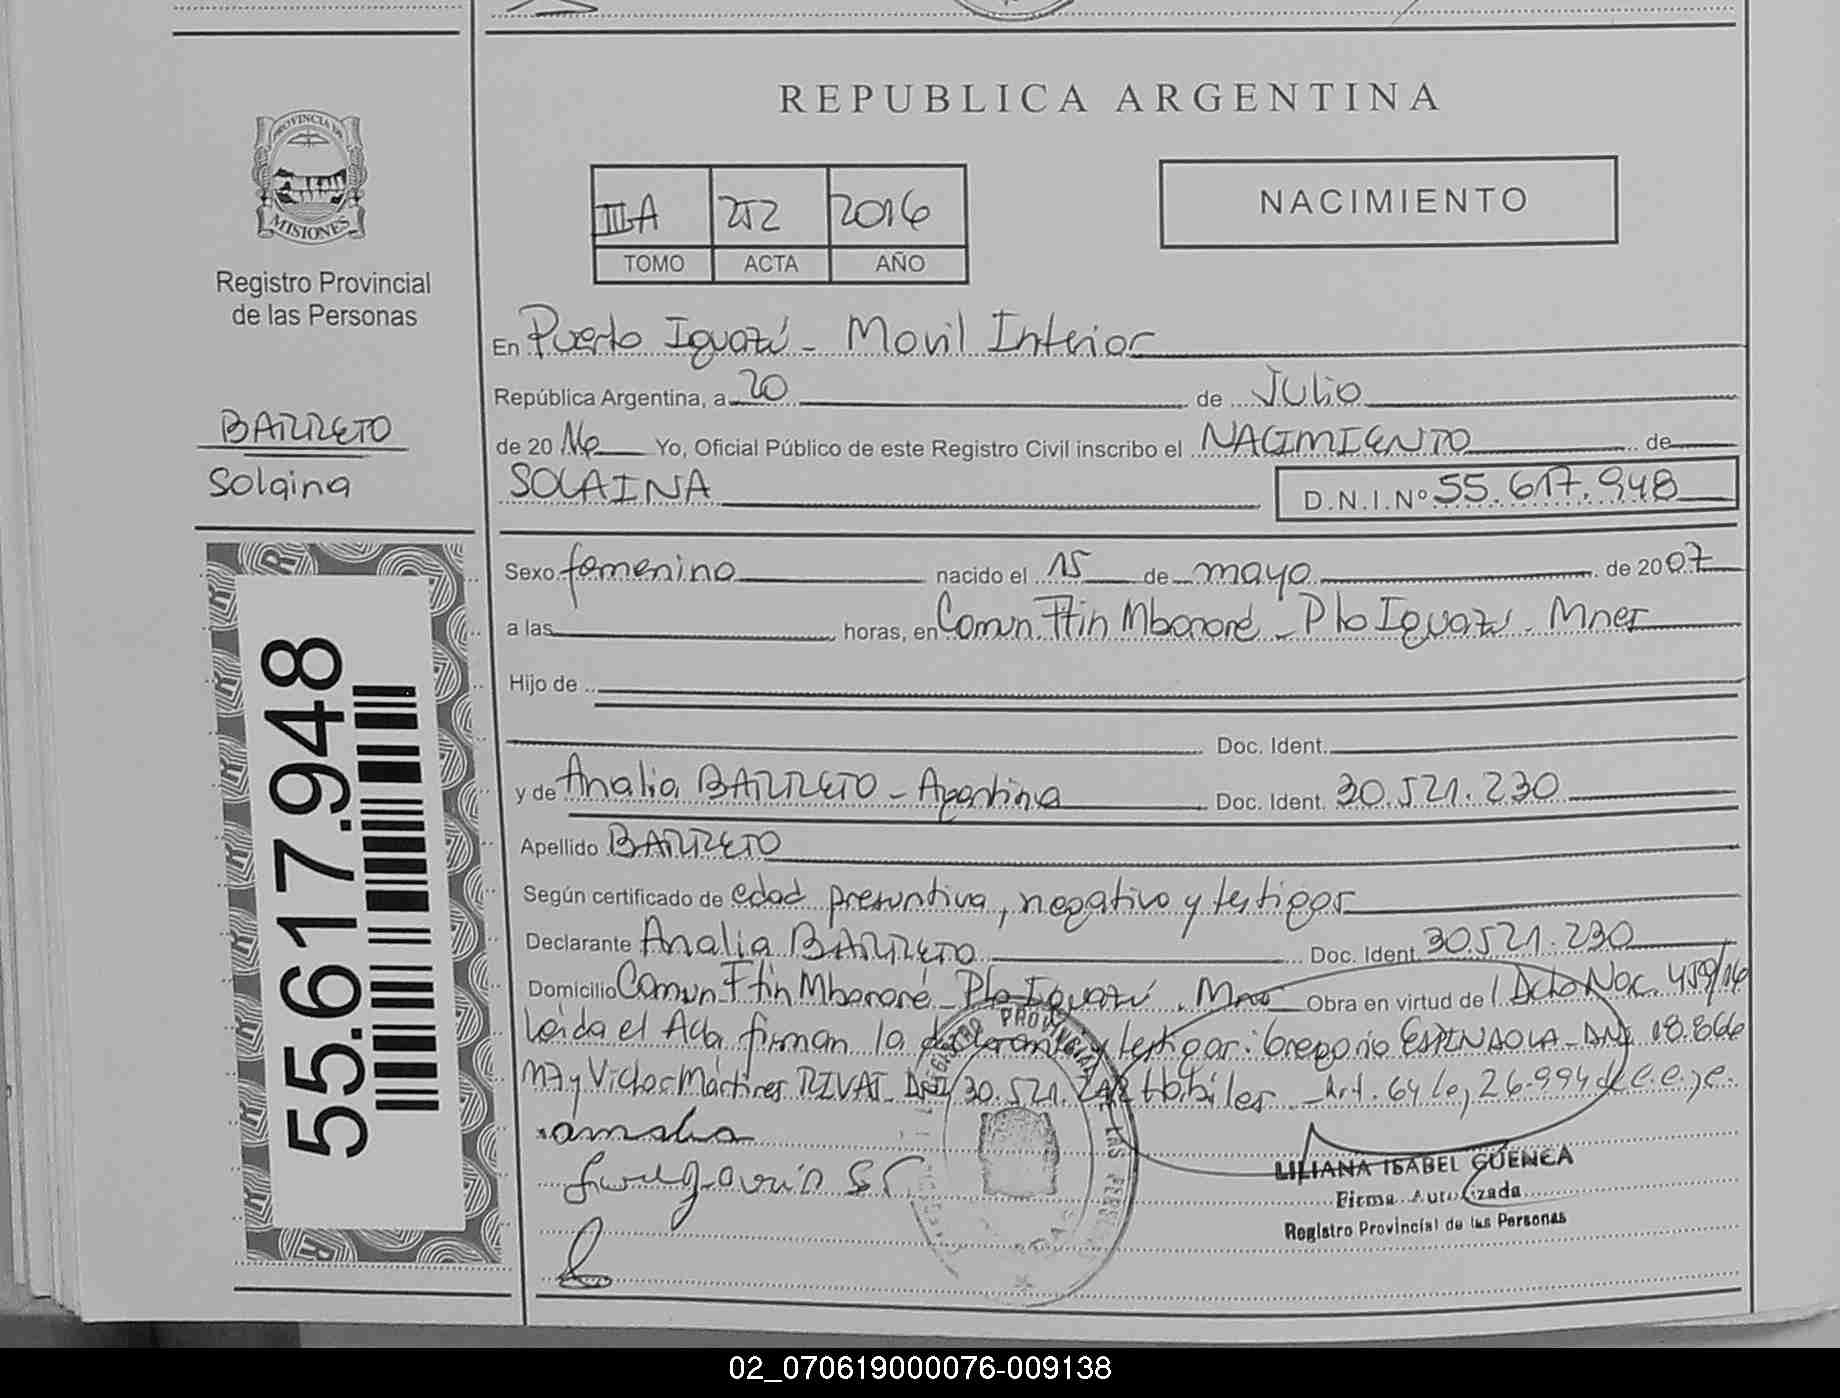 REPUBLICA ARGENTINA
PROVINCIA DE
MISIONES
Registro Provincial
de las Personas
IIIA 252 2016
TOMO ACTA AÑO
NACIMIENTO
En Puerto Iguazú - Movil Interior
República Argentina, a 20 de Julio
de 2016 Yo, Oficial Público de este Registro Civil inscribo el NACIMIENTO de
BARRETO
Solaina
SOLAINA D.N.I.Nº 55.617.948
Sexo femenino nacido el 15 de mayo de 2007
a las horas, en Comun. Ftin Mbororé - Pto Iguazú - Mnes
Hijo de
Doc. Ident.
y de Analia BARRETO - Argentina Doc. Ident. 30.521.230
Apellido BARRETO
Según certificado de edad presuntiva, negativo y testigos
Declarante Analia BARRETO Doc. Ident. 30.521.230
Domicilio Comun Ftin Mbororé - Pto Iguazú . Mnes Obra en virtud de Dcto Nac. 459/16
Leida el Acta firman la declarante y testigos: Gregorio ESPINDOLA - DNI 18.866
y Victor Mártires RIVAS DNI 30.521. Hábiles - Art. 64 Ley 26.994 de C.C. y C.
55.617.948
LILIANA ISABEL CUENCA
Firma Autorizada
Registro Provincial de las Personas
02_070619000076-009138